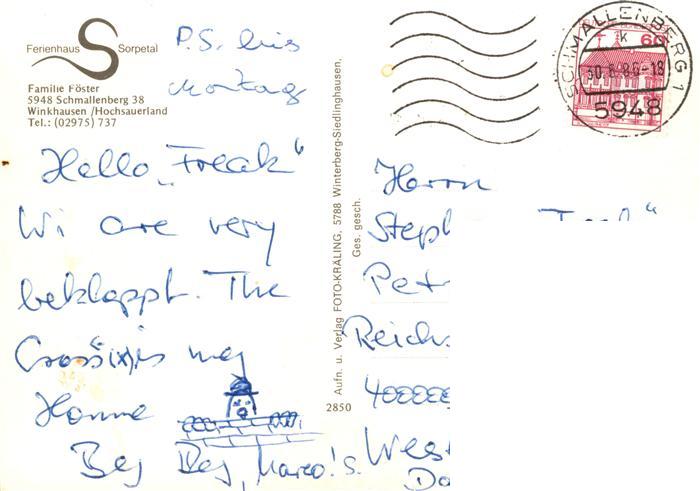 Ferienhaus S Sorpetal
Familie Föster
5948 Schmallenberg 38
Winkhausen /Hochsauerland
Tel.: (02975) 737
P.S. bis
Montag
Hello „Freak“
Wi are very
beklappt. The
Cross(x)is may
Homme
Bej Bej, Marco!s.
Aufn. u. Verlag FOTO-KRÄLING, 5788 Winterberg-Siedlinghausen,
Ges. gesch.
2850
60
SCHMALLENBERG 1
k
-18
5948
Herrn
Steph
Pet
Reichs
West
Do